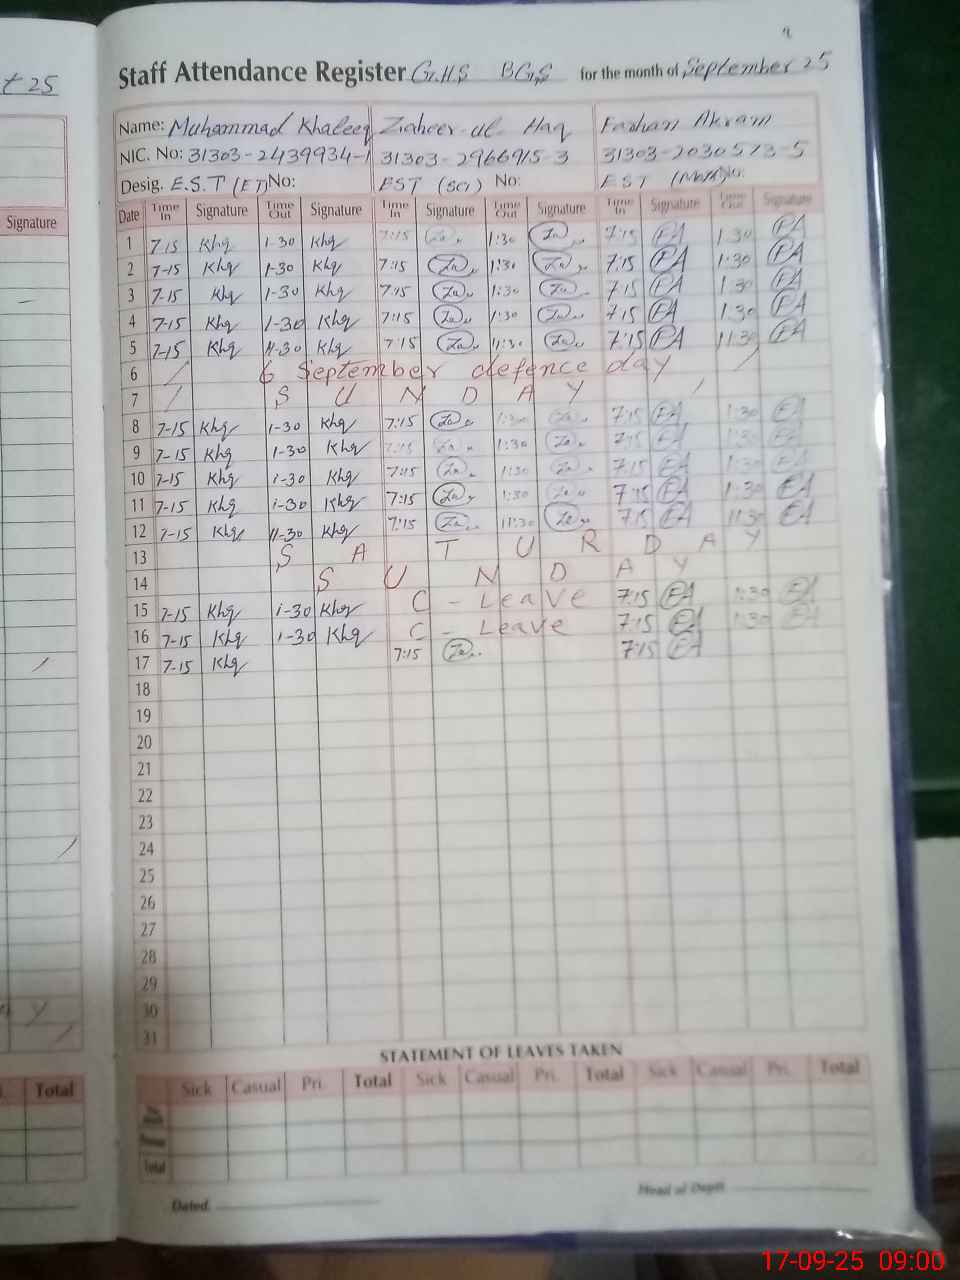 t 25
Signature
Total
Staff Attendance Register G.H.S BGS for the month of September 25
Name: Muhammad Khaleeq Zaheer-ul-Haq Farhan Akram
NIC. No: 31303-2439934-1 31303-2966915-3 31303-2030573-5
Desig. E.S.T (ET) No: EST (Sci) No: EST (Math) No:
Date Time In Signature Time Out Signature Time In Signature Time Out Signature Time In Signature Time Out Signature
1 7-15 Khq 1-30 Khq 7:15 Za 1:30 Za 7:15 FA 1:30 FA
2 7-15 Khq 1-30 Khq 7:15 Za 1:30 Za 7:15 FA 1:30 FA
3 7-15 Khq 1-30 Khq 7:15 Za 1:30 Za 7:15 FA 1:30 FA
4 7-15 Khq 1-30 Khq 7:15 Za 1:30 Za 7:15 FA 1:30 FA
5 7-15 Khq 11-30 Khq 7:15 Za 11:30 Za 7:15 FA 11:30 FA
6 6 September defence day
7 S U N D A Y
8 7-15 Khq 1-30 Khq 7:15 Za 1:30 Za 7:15 FA 1:30 FA
9 7-15 Khq 1-30 Khq 7:15 Za 1:30 Za 7:15 FA 1:30 FA
10 7-15 Khq 1-30 Khq 7:15 Za 1:30 Za 7:15 FA 1:30 FA
11 7-15 Khq 1-30 Khq 7:15 Za 1:30 Za 7:15 FA 1:30 FA
12 7-15 Khq 11-30 Khq 7:15 Za 11:30 Za 7:15 FA 11:30 FA
13 S A T U R D A Y
14 S U N D A Y
15 7-15 Khq 1-30 Khq C - Leave 7:15 FA 1:30 FA
16 7-15 Khq 1-30 Khq C - Leave 7:15 FA 1:30 FA
17 7-15 Khq 7:15 Za 7:15 FA
18
19
20
21
22
23
24
25
26
27
28
29
30
31
STATEMENT OF LEAVES TAKEN
Sick Casual Pri. Total Sick Casual Pri. Total Sick Casual Pri. Total
Total
Dated Head of Deptt
17-09-25 09:00